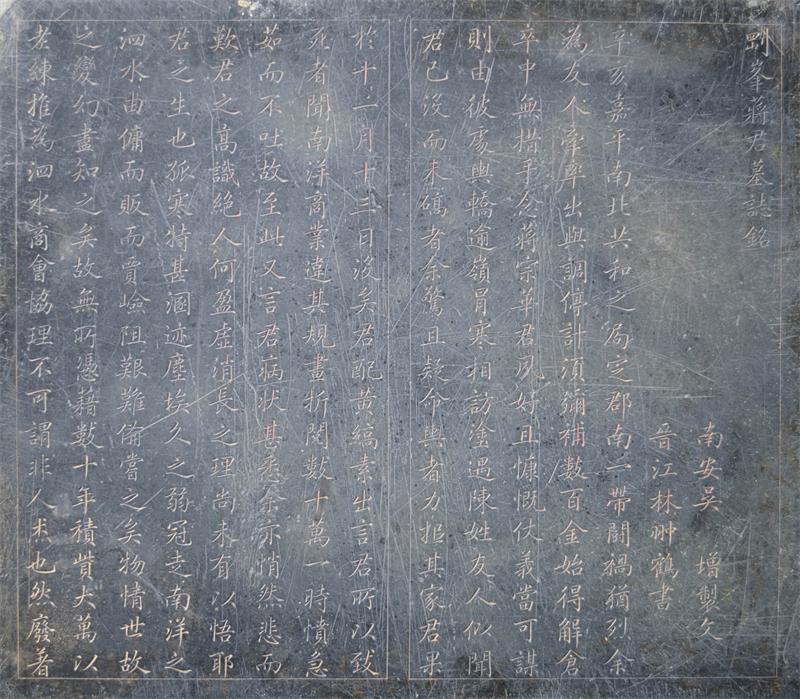 峯蔣君墓誌銘
南安吳增製文
晋江林翀鶴書
辛亥嘉平南北共和之局定郡南一帶鬪禍猶烈余
為友人牽率出與調停計須彌補數百金始得解倉
卒中無措手念蔣宗華君夙好且慷慨仗義當可謀
則由彼處輿轎逾嶺冒寒相訪塗遇陳姓友人似聞
君已沒而未碻者余驚且疑命輿者力抵其家君果
於十二月十三日沒矣君配黄縞素出言君所以致
死者聞南洋商業違其規畫折閱數十萬一時憤急
茹而不吐故至此又言君病狀甚悉余亦悄然悲而
歎君之高識絕人何盈虛消長之理尚未有以悟耶
君之生也孤寒特甚溷迹塵埃久之弱冠走南洋之
泗水由傭而販而賈嶮阻艱難俻嘗之矣物情世故
之變幻盡知之矣故無所憑藉數十年積貲大萬以
老練推為泗水商會協理不可謂非人傑也然廢著